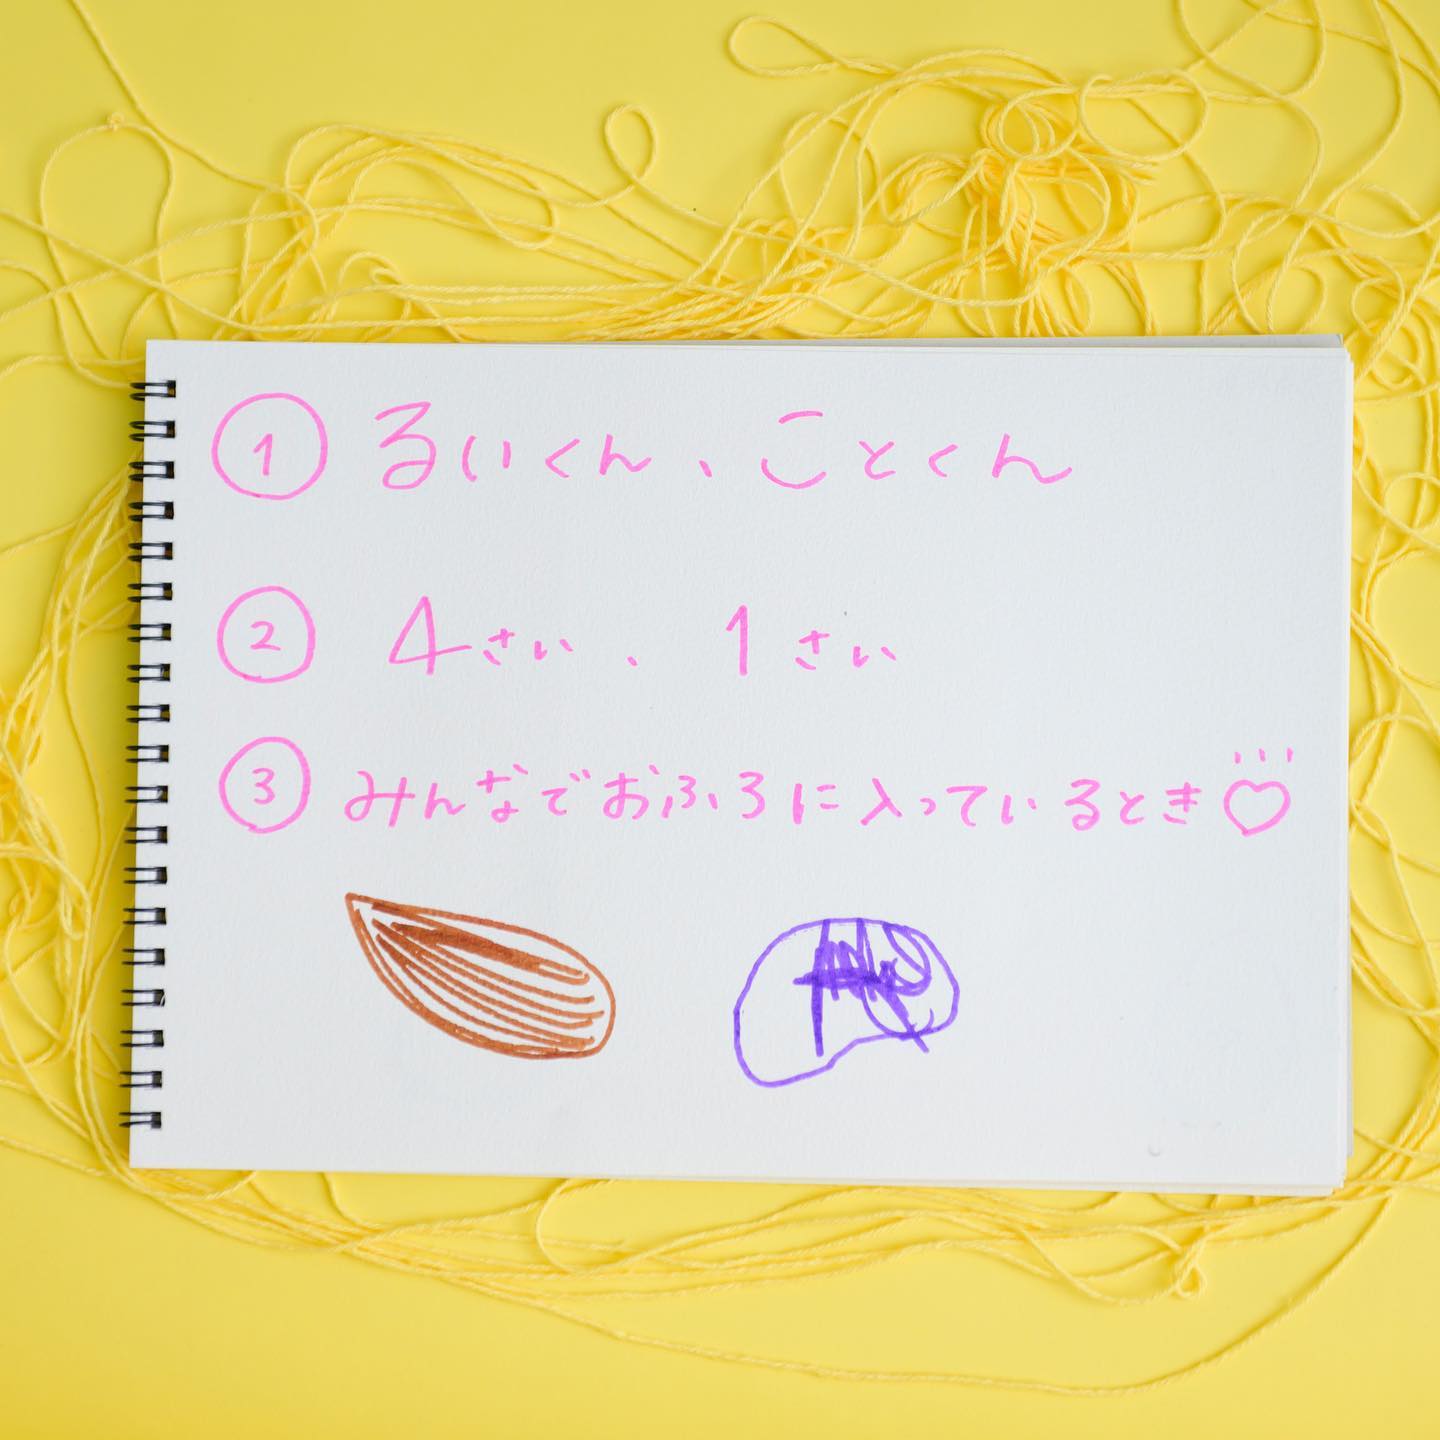 ① るいくん、ことくん
② 4さい、1さい
③ みんなでおふろに入っているとき♡